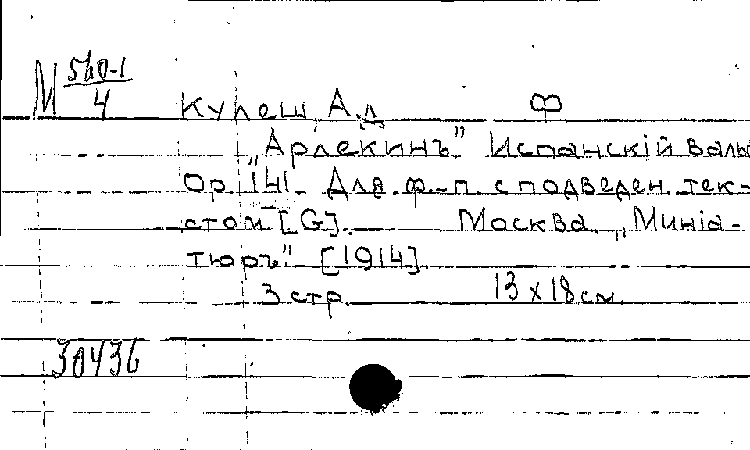 М 560-1/4 Кулеш, Ад. Ф
„Арлекинъ" Испанскій валь
Op. 141. Для ф.-п. с подведен. тек-
стом [G]. Москва. „Миніа-
тюръ" [1914].
3 стр. 13 x 18 см.
30436